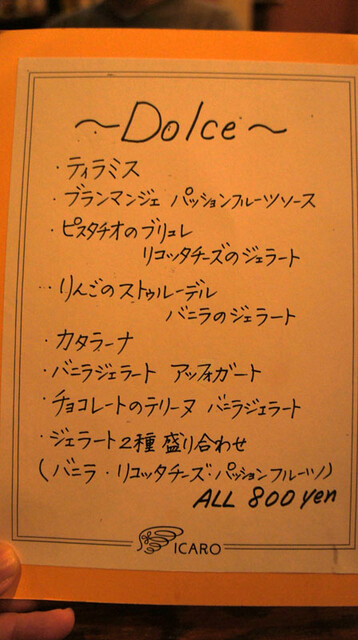 ~Dolce~
・ティラミス
・ブランマンジェ パッションフルーツソース
・ピスタチオのブリュレ
リコッタチーズのジェラート
・りんごのストゥルーデル
バニラのジェラート
・カタラーナ
・バニラジェラート アッフォガート
・チョコレートのテリーヌ バニラジェラート
・ジェラート2種盛り合わせ
(バニラ・リコッタチーズ・パッションフルーツ)
ALL 800 yen
ICARO